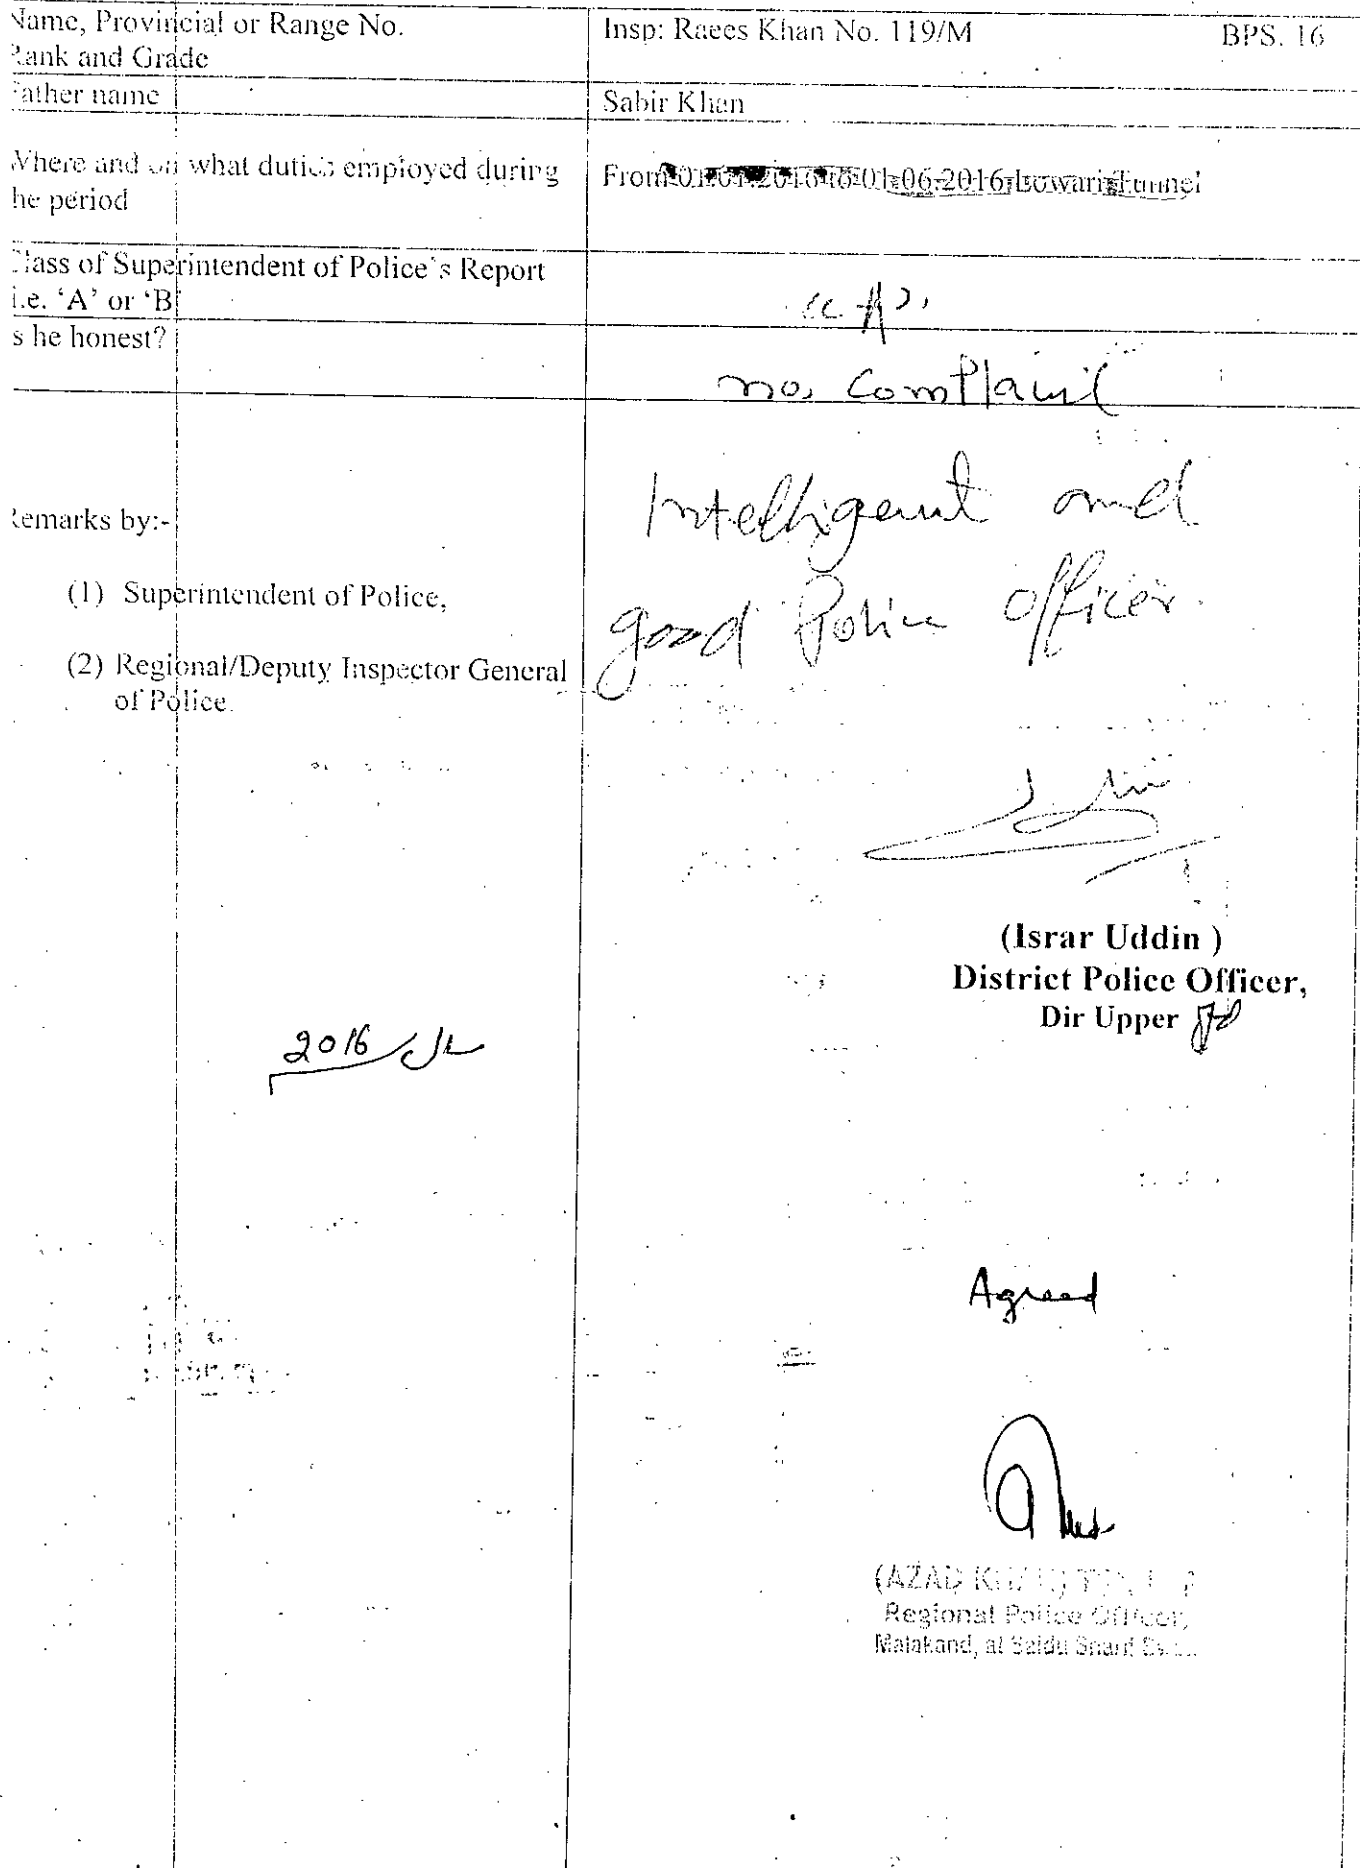 Name, Provincial or Range No.
Rank and Grade
Insp: Raees Khan No. 119/M BPS. 16
Father name
Sabir Khan
Where and on what duties employed during
the period
From 01-06-2016 Lowari Tunnel
Class of Superintendent of Police's Report
i.e. 'A' or 'B'
"A"
Is he honest?
no complaint
Remarks by:-
(1) Superintendent of Police,
(2) Regional/Deputy Inspector General
of Police.
Intelligent and
good Police officer.
(Israr Uddin )
District Police Officer,
Dir Upper
سال 2016
Agreed
(AZAD KHAN)
Regional Police Officer,
Malakand, at Saidu Sharif